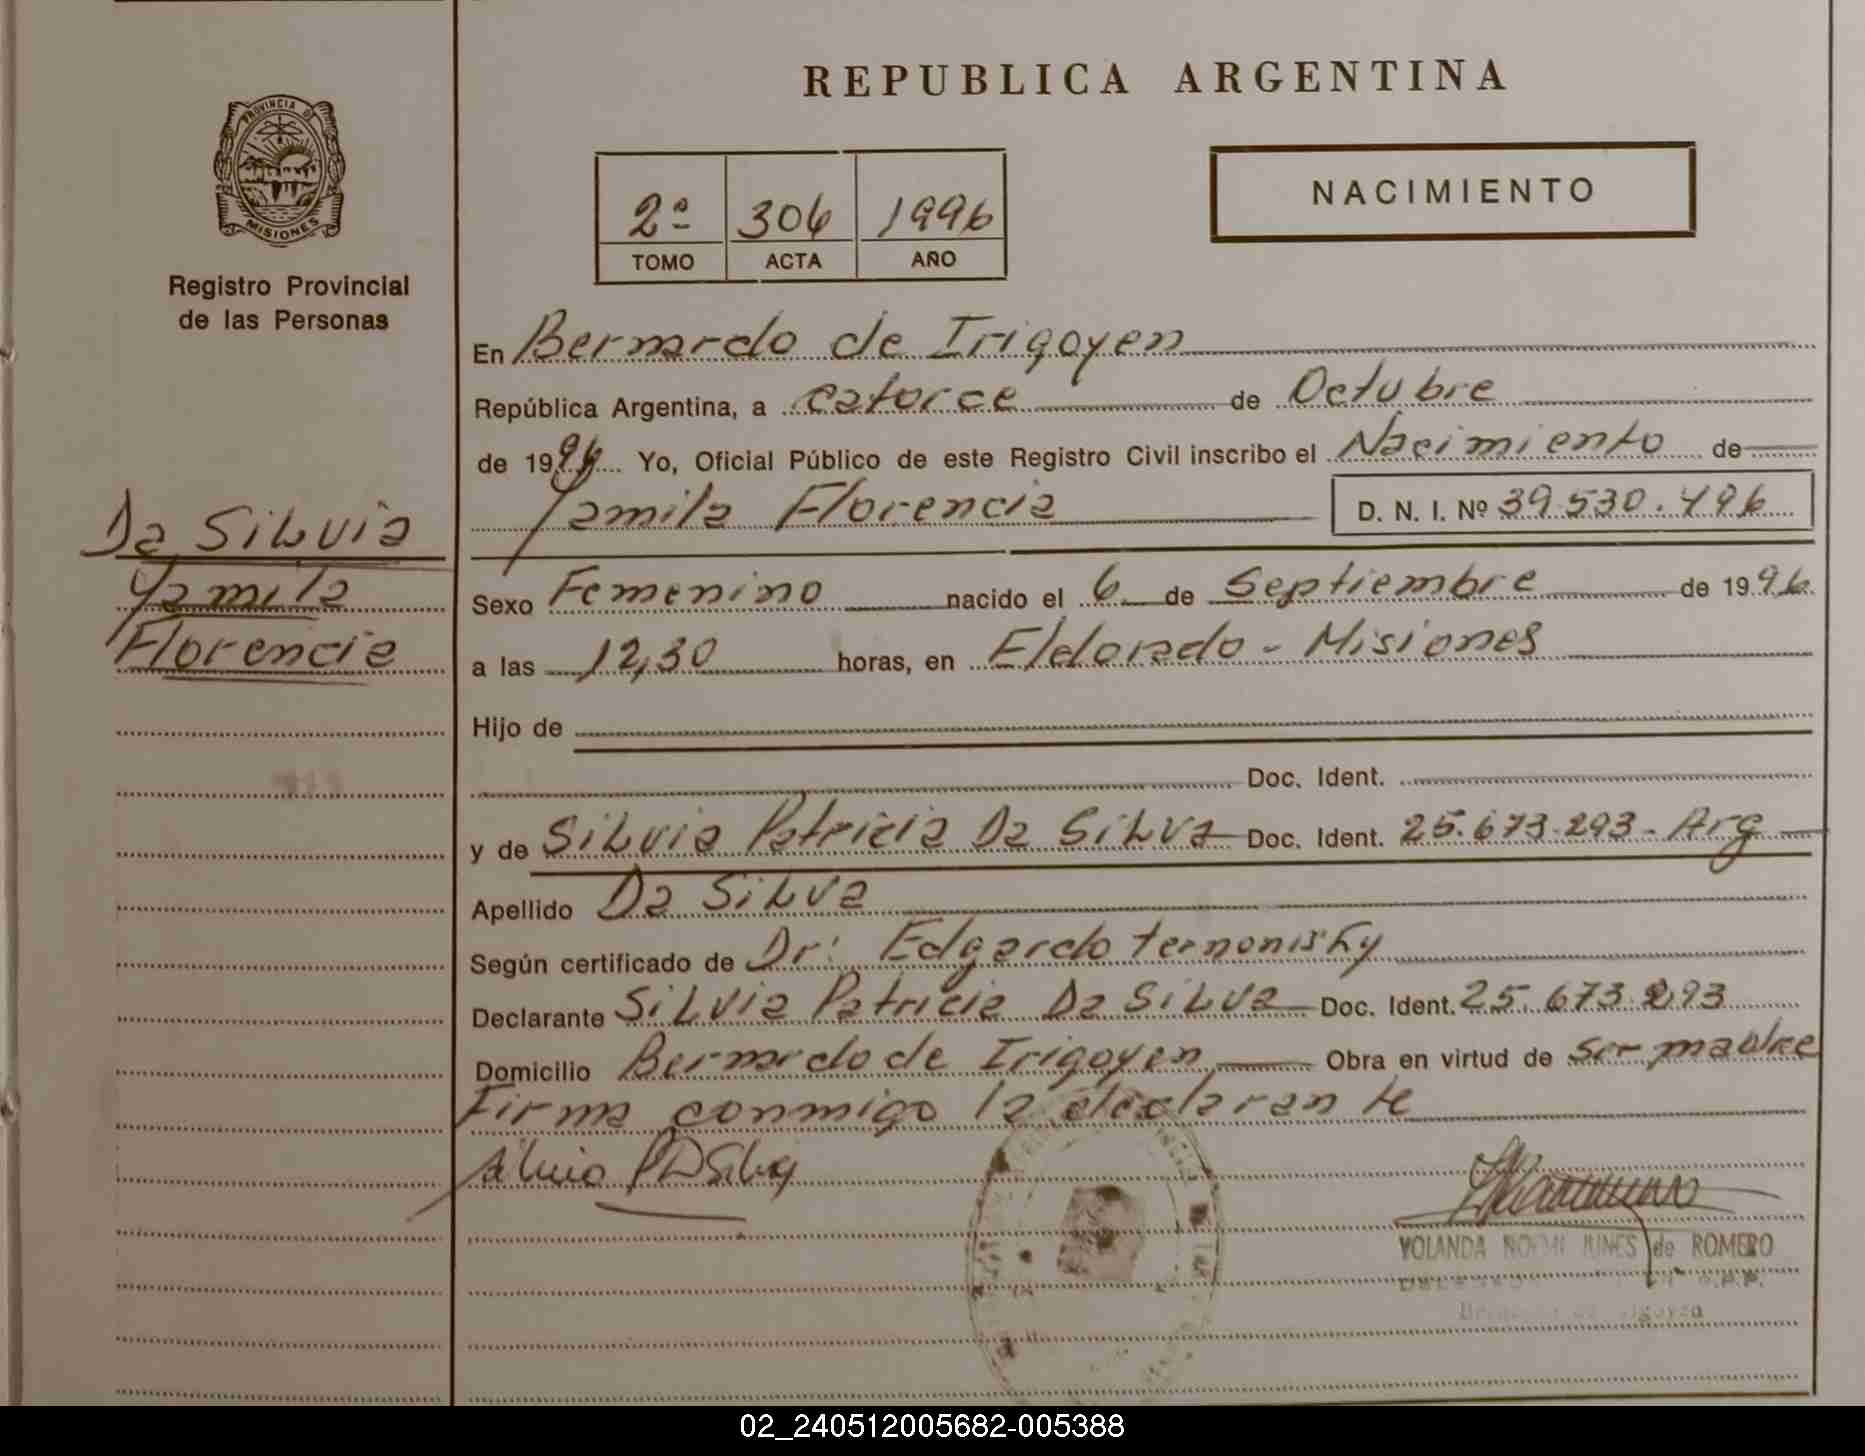 REPUBLICA ARGENTINA
PROVINCIA DE
MISIONES
Registro Provincial
de las Personas
2º 306 1996
TOMO ACTA AÑO
NACIMIENTO
En Bernardo de Irigoyen
República Argentina, a catorce de Octubre
de 1996 Yo, Oficial Público de este Registro Civil inscribo el Nacimiento de
Yamila Florencia D. N. I. Nº 39.530.496
Da Silvia
Yamila
Florencia
Sexo Femenino nacido el 6 de Septiembre de 1996
a las 12,30 horas, en Eldorado - Misiones
Hijo de
Doc. Ident.
y de Silvia Patricia Da Silva Doc. Ident. 25.673.293 - Arg
Apellido Da Silva
Según certificado de Dr. Edgardo
Declarante Silvia Patricia Da Silva Doc. Ident. 25.673.293
Domicilio Bernardo de Irigoyen Obra en virtud de ser madre
Firma conmigo la declarante
Silvia P D Silva
YOLANDA NOEMI de ROMERO
02_240512005682-005388